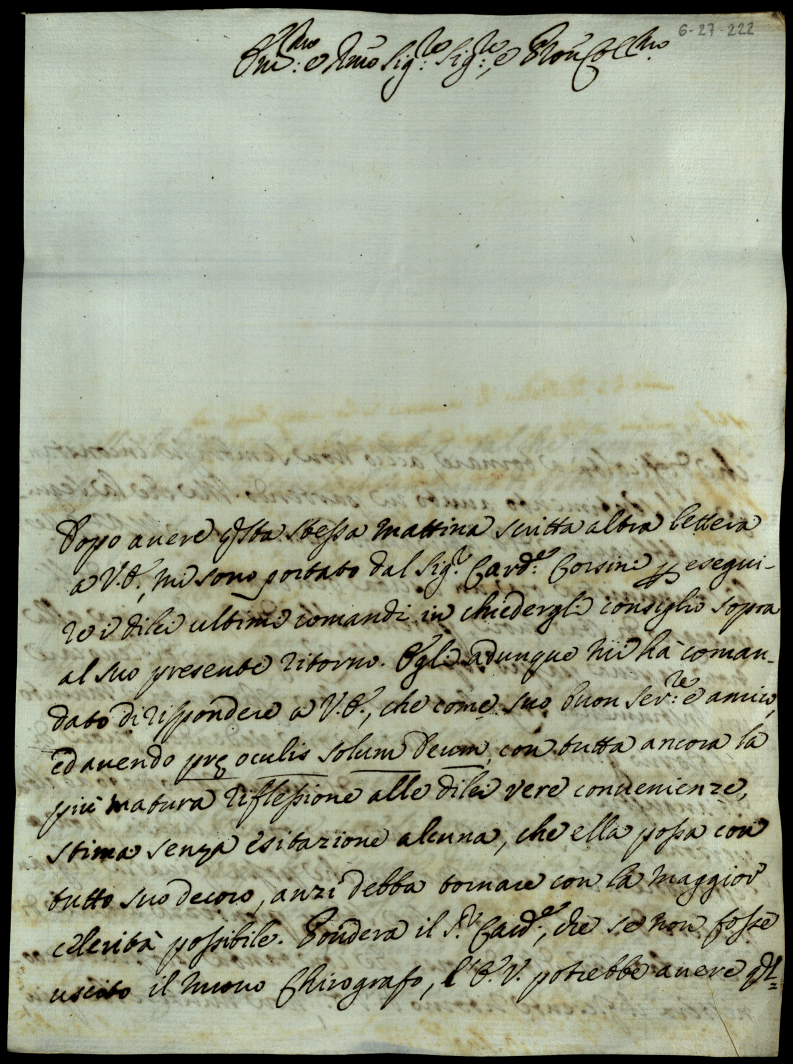 6-27-222
Em.mo e Rmo Sig.re Sig.re, e Pron Col.mo
Dopo avere qsta stessa mattina scritta altra lettera
a V.E., mi sono portato dal Sig.r Card.e Corsini p esegui-
re i di lei ultimi comandi in chiedergli consiglio sopra
al suo presente ritorno. Egli adunque mi hà coman-
dato di rispondere a V.E., che come suo buon Ser.re e amico,
ed avendo pre oculis solum Deum, con tutta ancora la
più matura riflessione alle di lei vere convenienze,
stima senza esitazione alcuna, che ella possa con
tutto suo decoro, anzi debba tornare con la maggior
celerità possibile. Pondera il S.r Card.e, che se non fosse
uscito il nuovo Chirografo, l'E.V. potrebbe avere